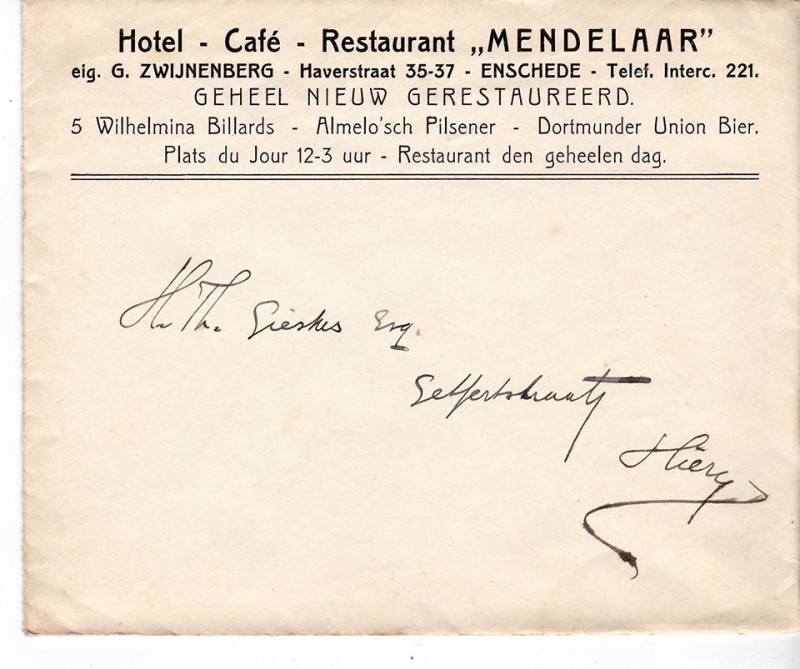 Hotel - Café - Restaurant „MENDELAAR”
eig. G. ZWIJNENBERG - Haverstraat 35-37 - ENSCHEDE - Telef. Interc. 221.
GEHEEL NIEUW GERESTAUREERD.
5 Wilhelmina Billards - Almelo'sch Pilsener - Dortmunder Union Bier.
Plats du Jour 12-3 uur - Restaurant den geheelen dag.
H. Th. Gieskes Esq.